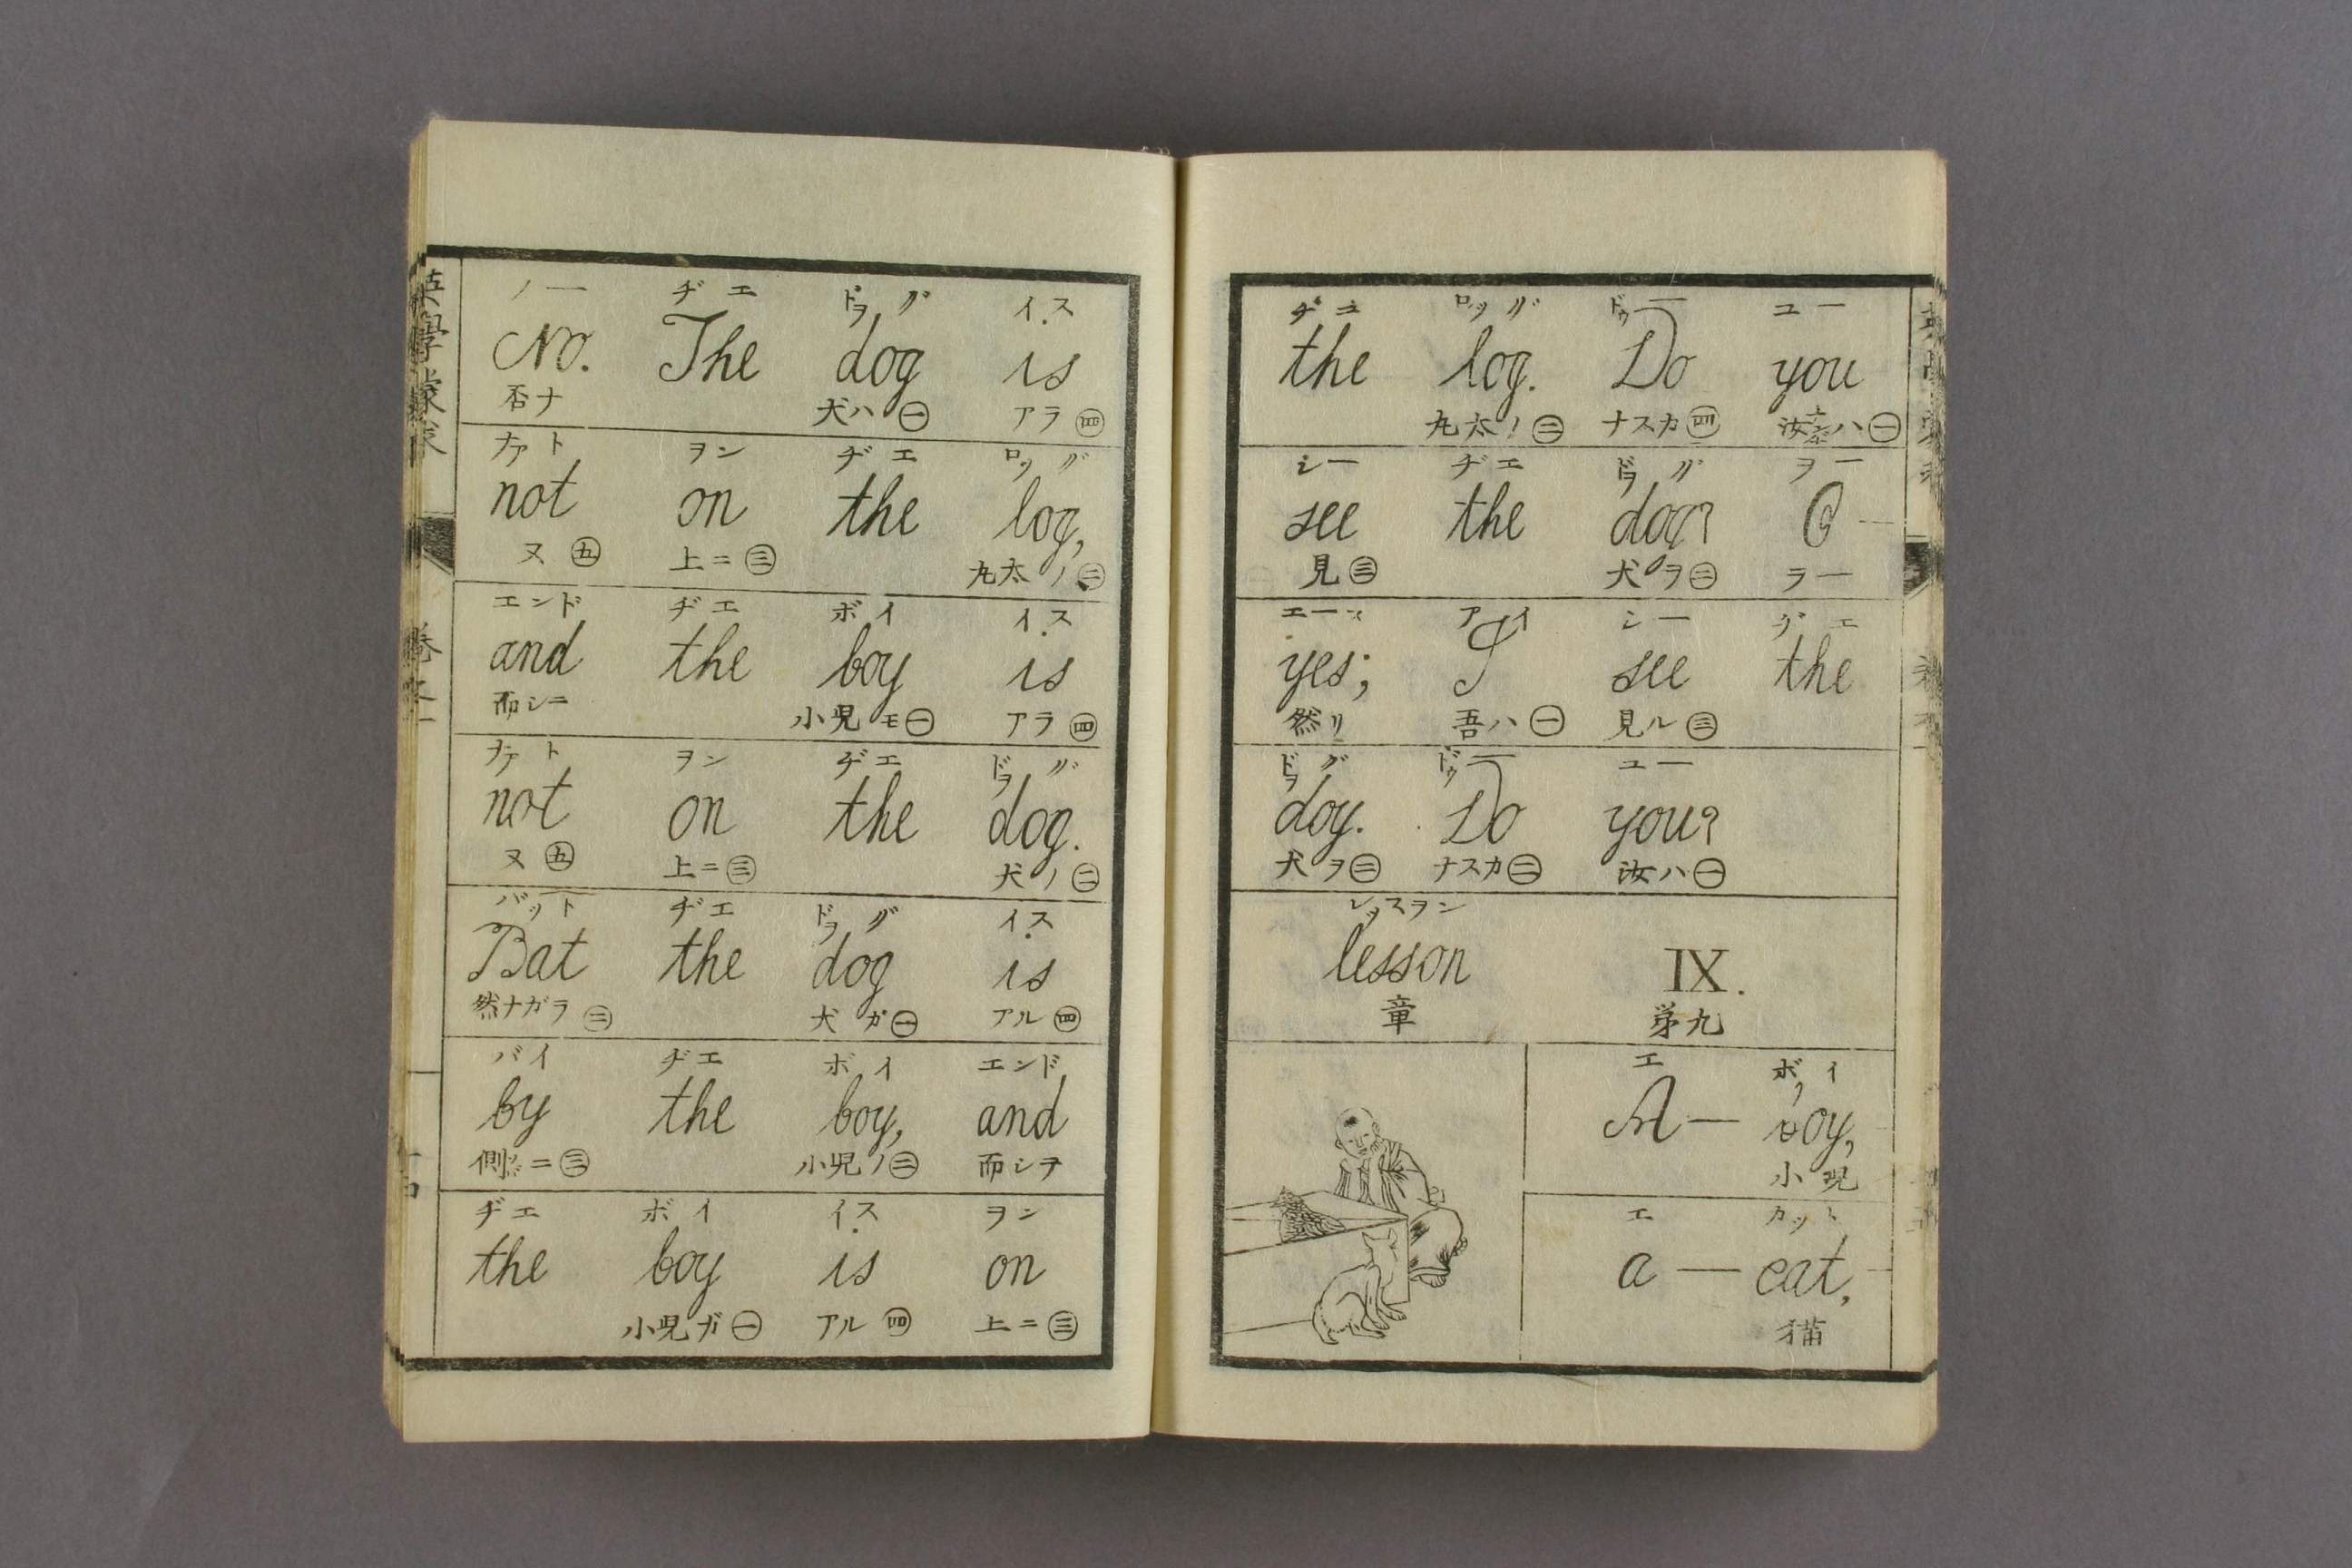 ノー ヂエ ドヲグ イス
No. The dog is
否ナ 犬ハ㊀ アラ㊃
ナアト ヲン ヂエ ロツグ
not on the log,
ヌ㊄ 上ニ㊂ 丸太ノ㊁
エンド ヂエ ボイ イス
and the boy is
而シニ 小児モ㊀ アラ㊃
ナアト ヲン ヂエ ドヲグ
not on the dog.
ヌ㊄ 上ニ㊂ 犬ノ㊁
バツト ヂエ ドヲグ イス
Bat the dog is
然ナガラ㊁ 犬ガ㊀ アル㊃
バイ ヂエ ボイ エンド
by the boy, and
側ニ㊂ 小児ノ㊁ 而シテ
ヂエ ボイ イス ヲン
the boy is on
小児ガ㊀ アル㊃ 上ニ㊂
ヂエ ロツグ ドゥー ユー
the log. Do you
丸太ノ㊁ ナスカ㊃ 汝ハ㊀
シー ヂエ ドヲグ ヲー
see the dog? O
見㊂ 犬ヲ㊁ ラー
エース アイ シー ヂエ
yes; I see the
然リ 吾ハ㊀ 見ル㊂
ドヲグ ドゥー ユー
doy. Do you?
犬ヲ㊁ ナスカ㊁ 汝ハ㊀
レッスヲン
lesson IX.
章 第九
エ ボイ
A — boy,
小児
エ カット
a — cat,
猫
英學蒙求